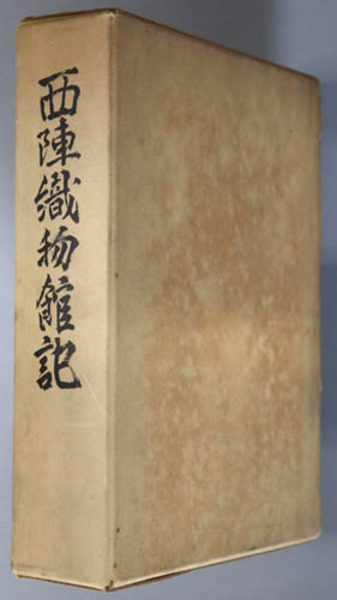 西陣織物館記